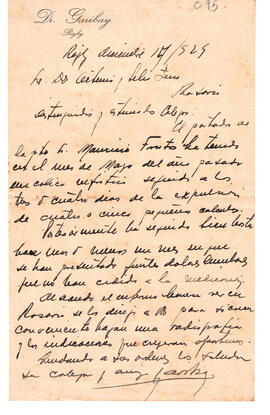 095
Dr. Garibay
Rigby
Rigby, diciembre 18/929
Sr. Dr. Artemio y Lelio Zeno
Rosario
distinguidos y estimados colegas:
El portador de
la pte Sr. Mauricio Frontos ha tenido
en el mes de Mayo del año pasado
un cólico nefrítico seguido a los
tres o cuatro dias de la expulsion
de cuatro o cinco pequeños calculos.
Posteriormente ha seguido bien hasta
hace mas o menos un mes en que
se han presentado fuertes dolores lumbares
que no han cedido a la medicacion.
Deseando el enfermo hacerse ver en
Rosario se los dirijo a Vd para si creen
conveniente hagan una radiografia
y las indicaciones que crean oportunas.
Quedando a sus ordenes los saluda
su colega y amigo Garibay